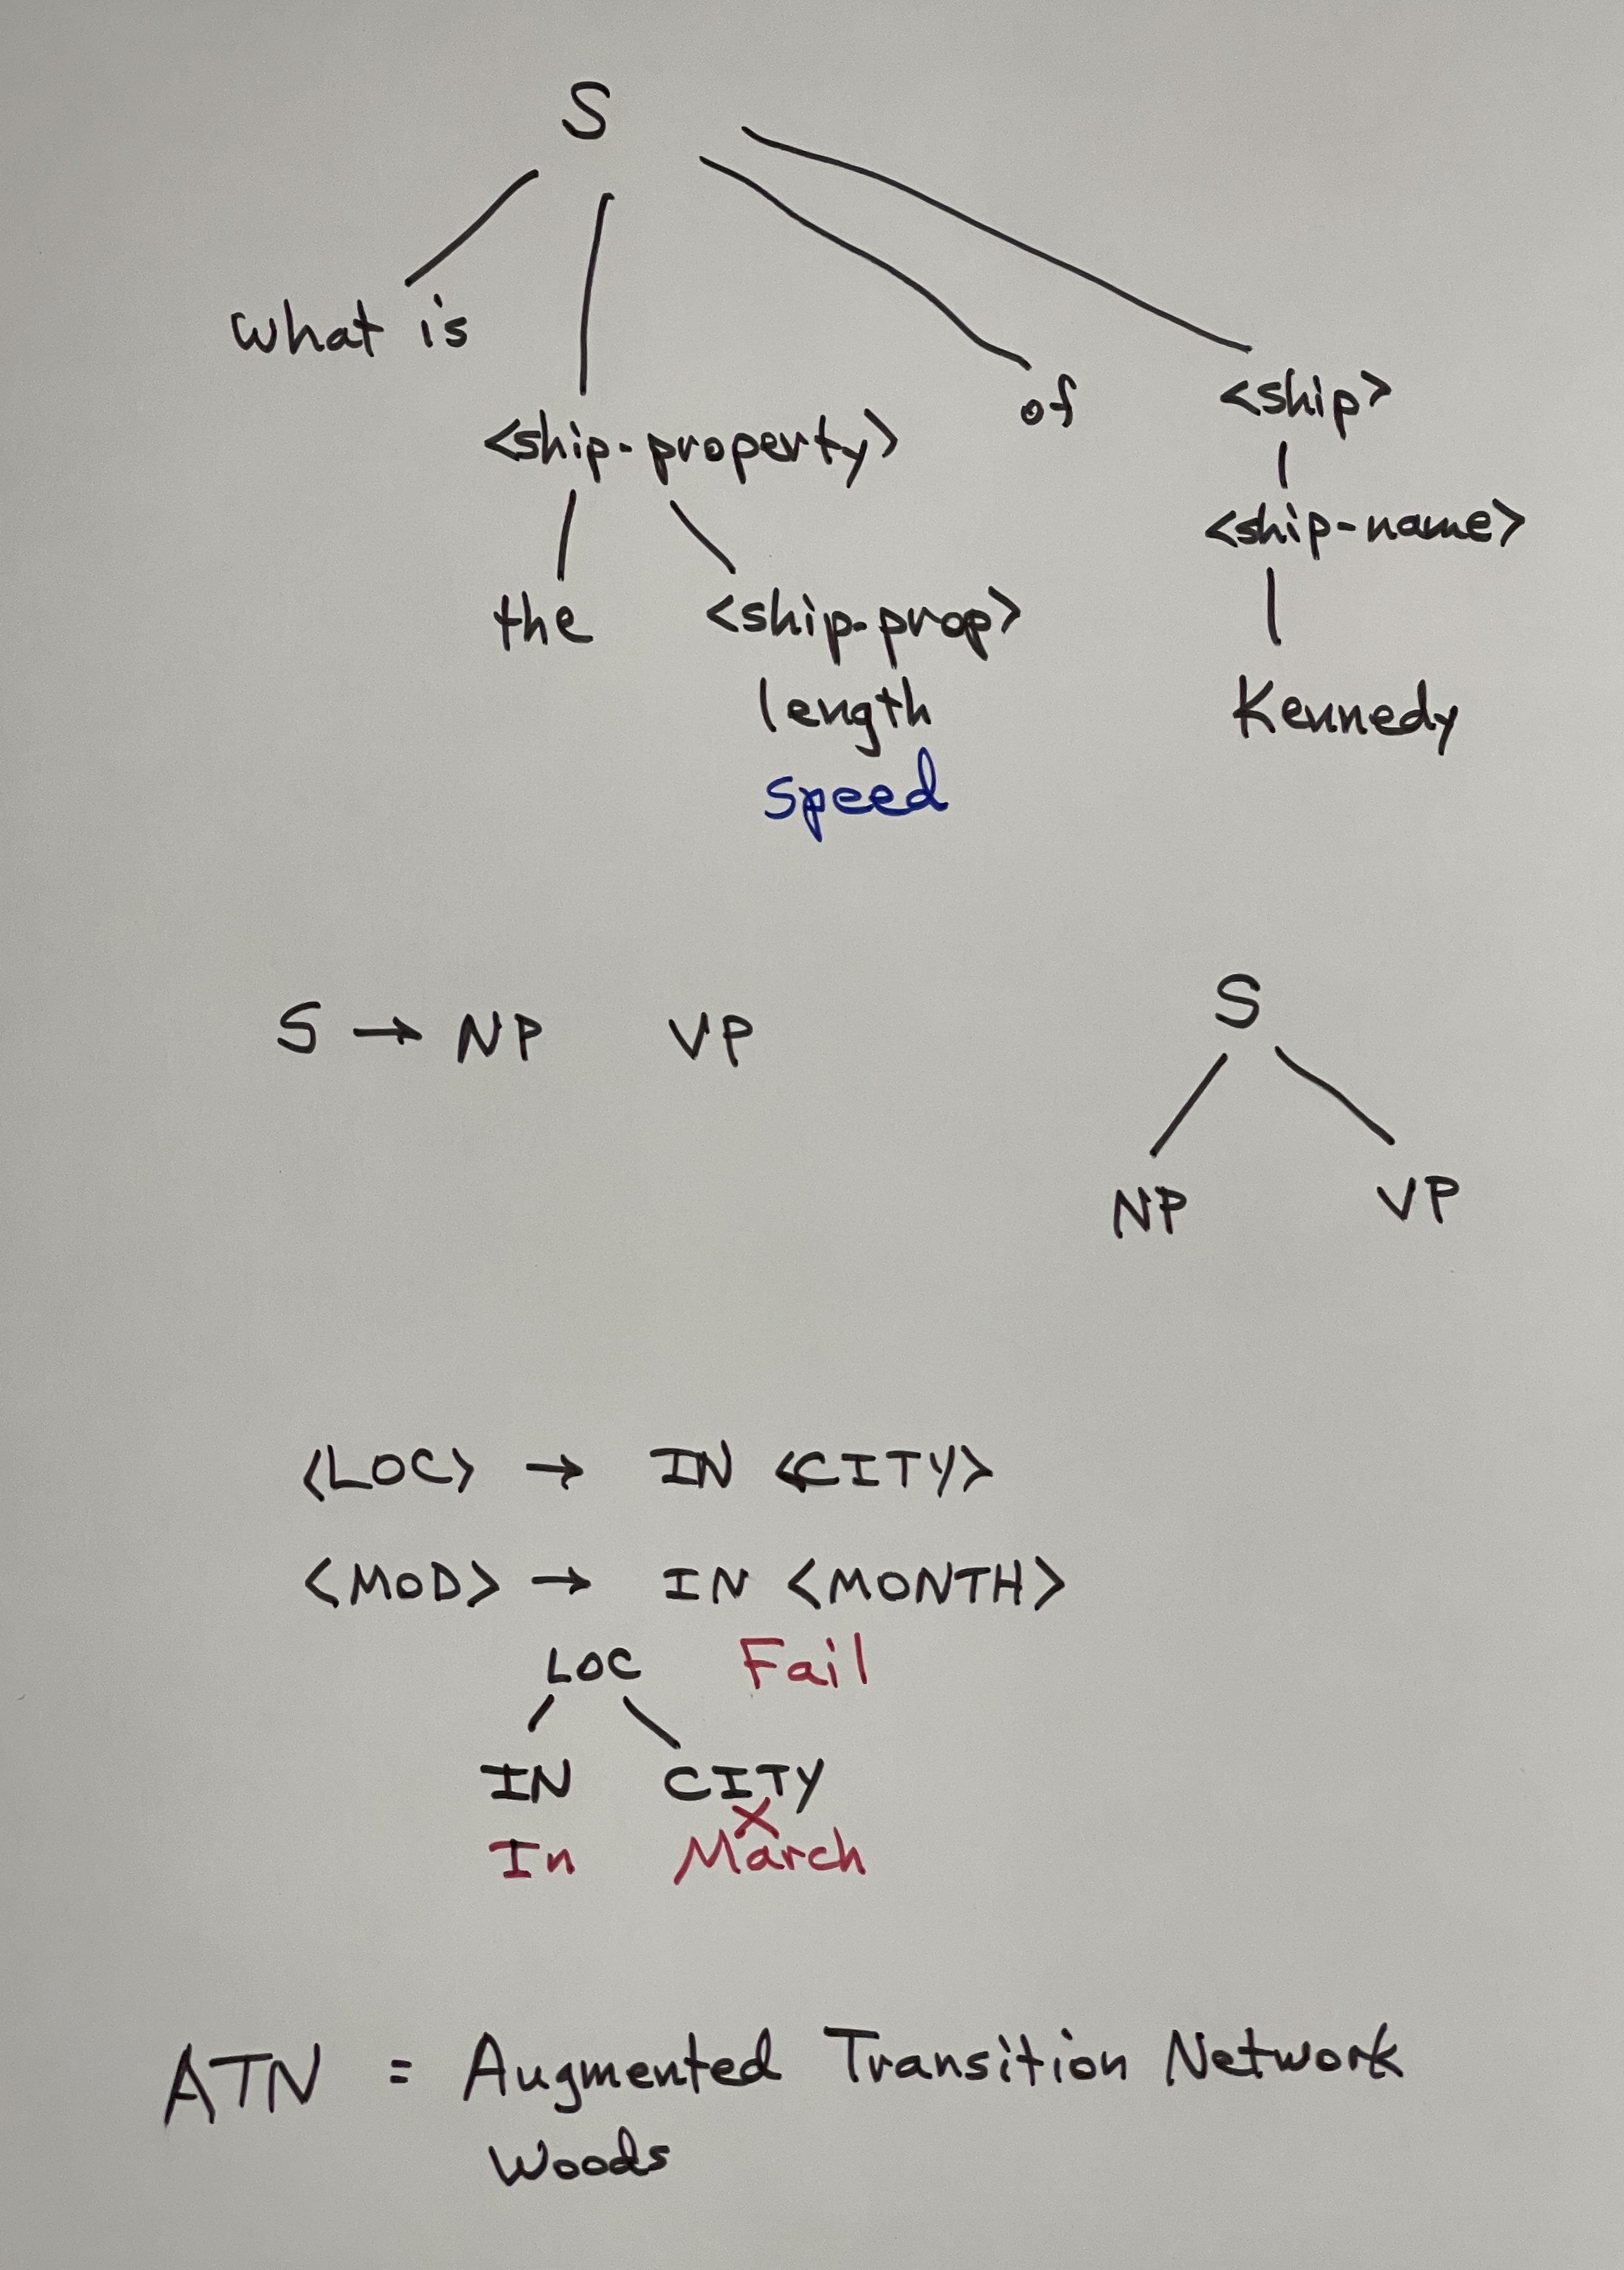 S
What is
of
<ship>
<ship-property>
<ship-name>
the
<ship-prop>
length
Kennedy
speed
S → NP VP
S
NP VP
<LOC> → IN <CITY>
<MOD> → IN <MONTH>
LOC Fail
IN CITY
X
In March
ATN = Augmented Transition Network
Woods